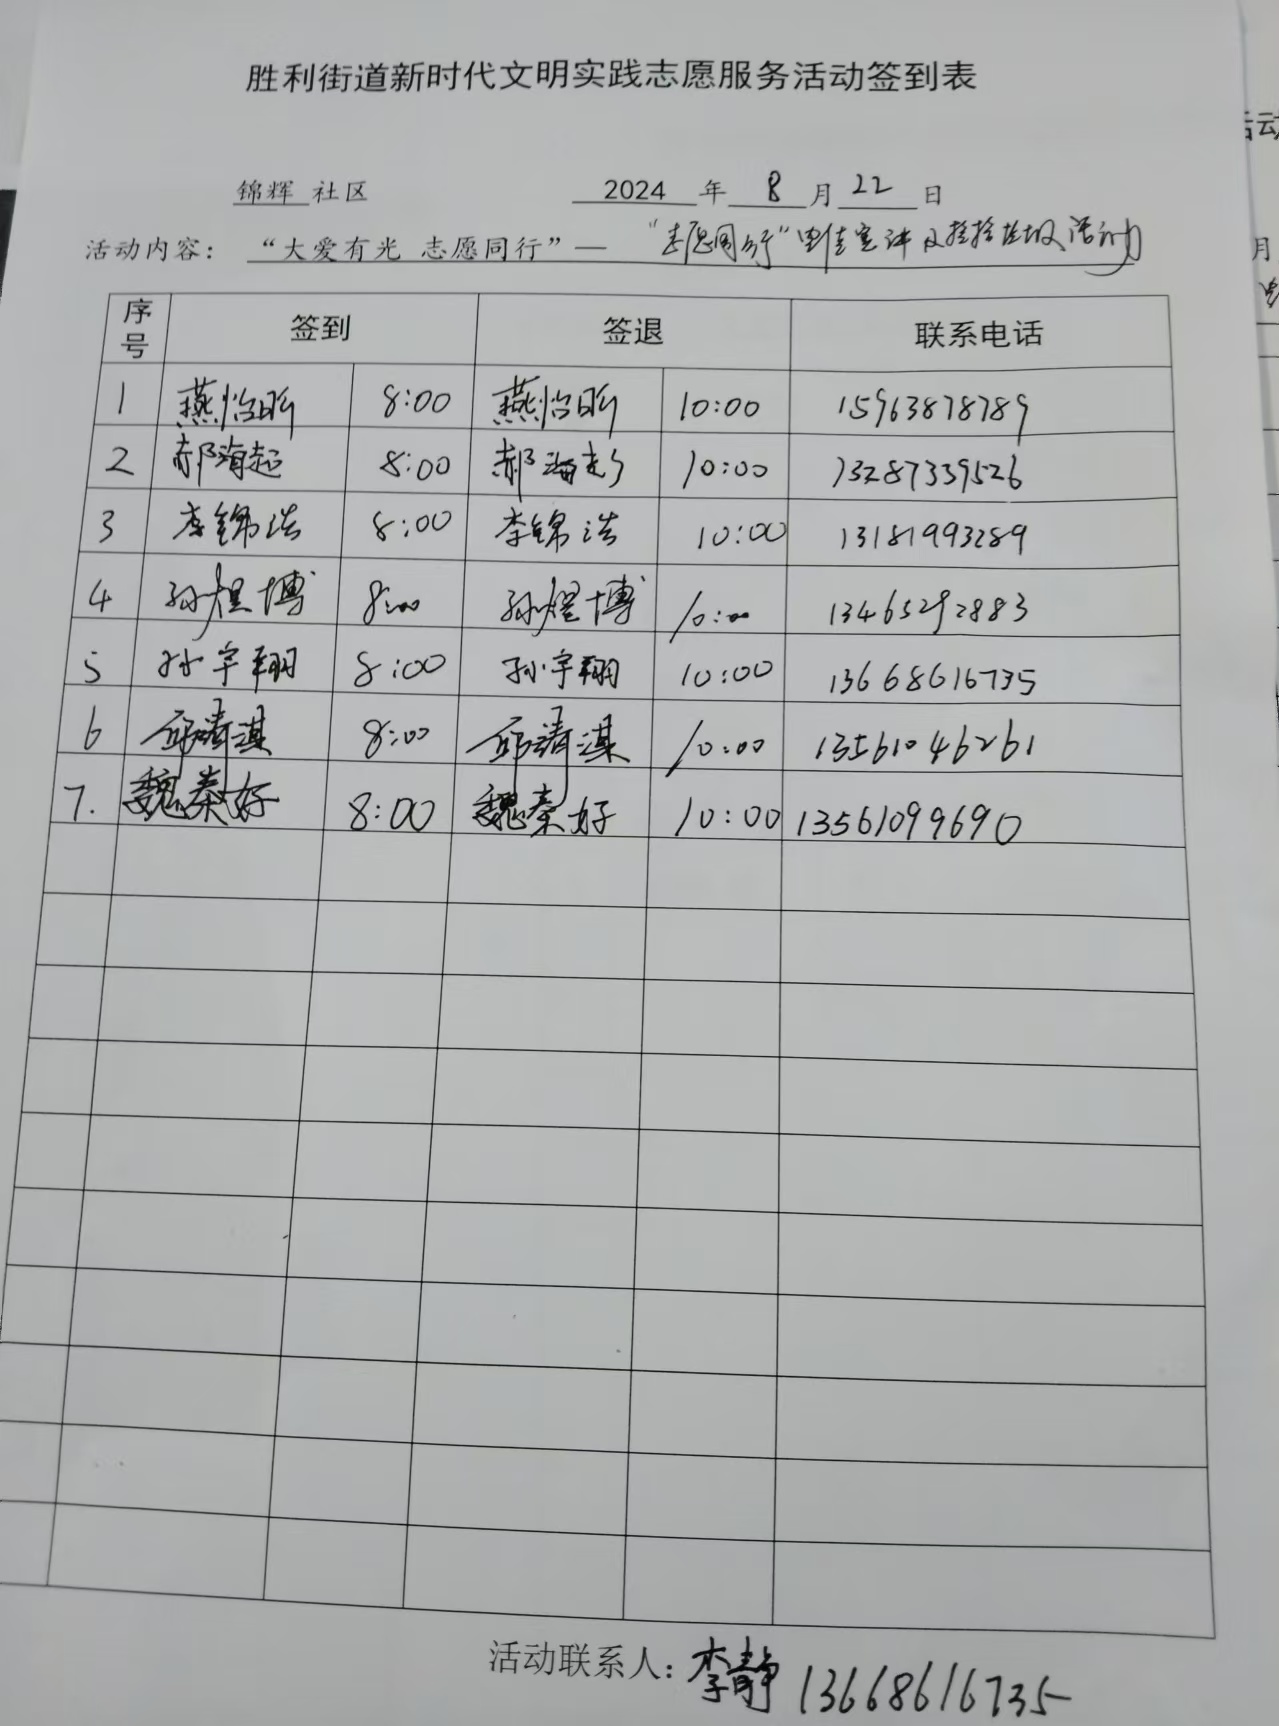 胜利街道新时代文明实践志愿服务活动签到表
锦辉 社区 2024 年 8 月 22 日
活动内容： “大爱有光 志愿同行”— “志愿同行” 宣讲及捡拾垃圾活动
序号 签到 签退 联系电话
1 燕怡昕 8:00 燕怡昕 10:00 15963878789
2 郝海超 8:00 郝海超 10:00 13287339526
3 李锦浩 8:00 李锦浩 10:00 13181993289
4 孙煜博 8:00 孙煜博 10:00 13465292883
5 孙宇翔 8:00 孙宇翔 10:00 13668616735
6 邱清淇 8:00 邱清淇 10:00 13561046261
7. 魏秦好 8:00 魏秦好 10:00 13561099690
活动联系人：李静 13668616735